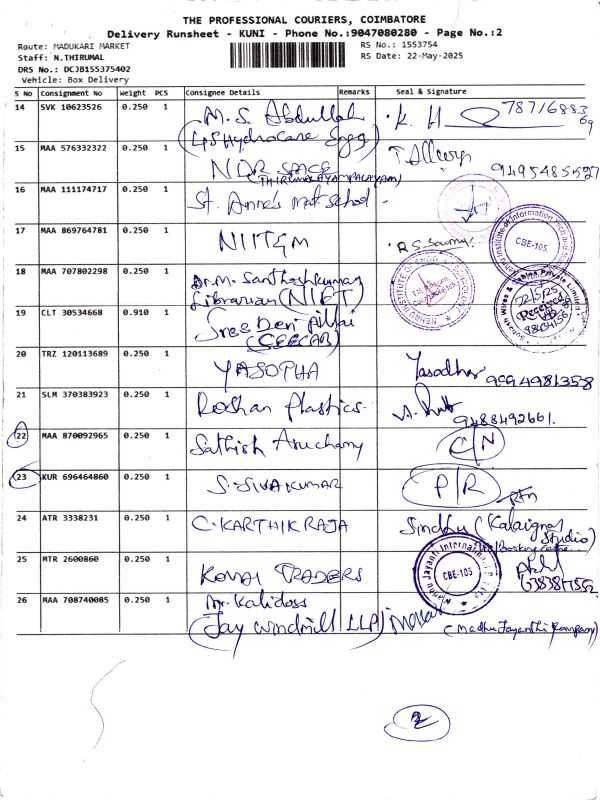 THE PROFESSIONAL COURIERS, COIMBATORE
Delivery Runsheet - KUNI - Phone No.:9047080280 - Page No.:2
Route: MADUKARI MARKET
RS No.: 1553754
Staff: N.THIRUMAL
RS Date: 22-May-2025
DRS No.: DCJB155375402
Vehicle: Box Delivery
S No Consignment No Weight PCS Consignee Details Remarks Seal & Signature
14 SVK 10623526 0.250 1 M. S. Abdullah K. H
15 MAA 576332322 0.250 1 NDR SPACE
(THIRUMALAYAMPALAYAM) 9495485527
16 MAA 111174717 0.250 1 St. Anne's Mat school -
17 MAA 869764781 0.250 1 NIITEM
CBE-105.
18 MAA 707802298 0.250 1 Dr. M. Santhoshkumar
Librarian (NIET)
22/5/25
Received
19 CLT 30534668 0.910 1 Sree Devi
20 TRZ 120113689 0.250 1 YASOPHA Yasodha
21 SLM 370383923 0.250 1 Roshan Plastics.
9488492661.
22 MAA 870092965 0.250 1 Sathish Aruchamy C/N
23 KUR 696464860 0.250 1 S. SIVAKUMAR P/R
24 ATR 3338231 0.250 1 C. KARTHIK RAJA Sindhu (Kalaignar
Studio)
25 MTR 2600860 0.250 1 KOVAI TRADERS
CBE-105
26 MAA 708740085 0.250 1 Mr. Kalidoss
(Jay windmill LLP) (Madhu Jayanthi Company)
2